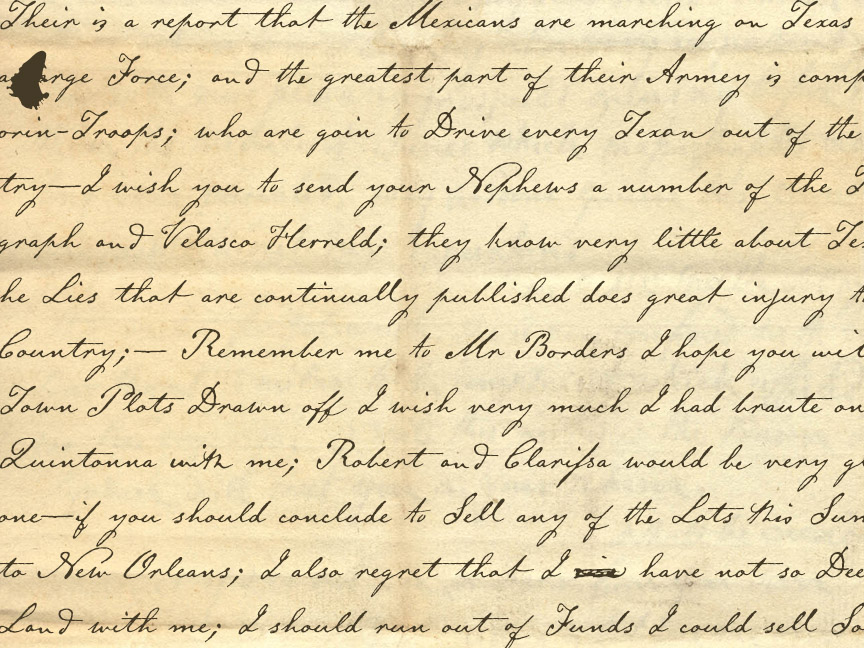 Their is a report that the Mexicans are marching on Texas
Force; and the greatest part of their Armey is
Troops; who are goin to Drive every Texan out of the
I wish you to send your Nephews a number of the
and Velasco Herreld; they know very little about
Lies that are continually published does great injury
Country;— Remember me to Mr Borders I hope you
Town Plots Drawn off I wish very much I had braute
Quintanna with me; Robert and Clarifsa would be very
one—if you should conclude to Sell any of the Lots this
to New Orleans; I also regret that I have not so
Land with me; I should run out of Funds I could sell